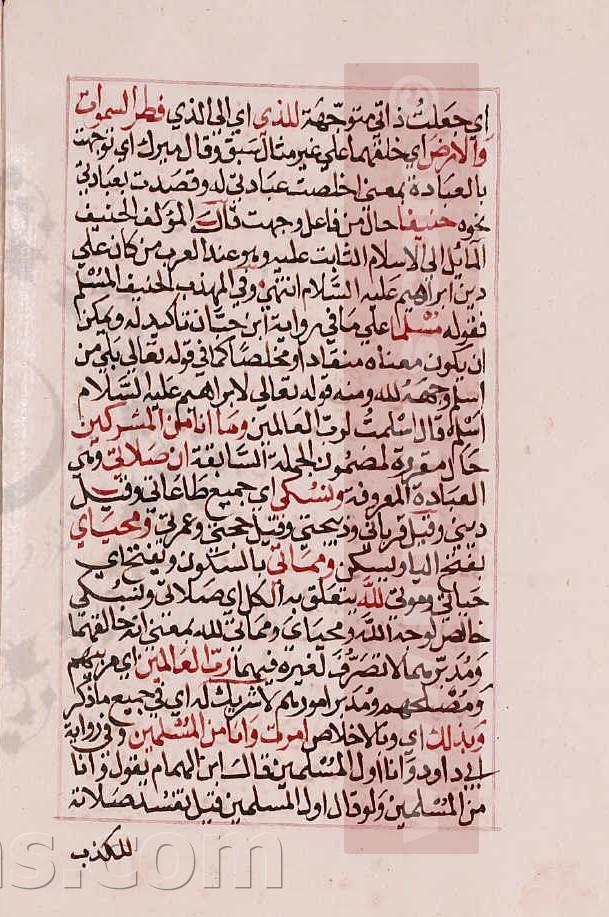 اي جعلت ذاتي متوجّهة للذي اي الى الذي فطر السموات
والارض اي خلقهما علي غير مثال سبق وقال ميرك اي توجهت
بالعبادة بمعنى اخلصت عبادتي له وقصدت بعبادتي
نحوه حنيفا حال من فاعل وجهت قال المؤلف الحنيف
المائل الى الاسلام الثابت عليه وهو عند العرب من كان علي
دين ابراهيم عليه السّلام انتهى وفي المهذب الحنيف المسلم
فقوله مسلما علي ما في رواية ابن حبّان تاكيد له ويمكن
ان يكون معناه منقادا او مخلصا كما في قوله تعالى بلي من
اسلم وجهه لله ومنه قوله تعالي لابراهيم عليه السّلام
اسلم قال اسلمت لربّ العالمين وما انا من المشركين
حال مقررة لمضمون الجملة السّابقة ان صلاتي وهي
العبادة المعروفة ونسكي اي جميع طاعاتي وقيل
ديني وقيل قرباني وذبيحتي وقيل حجتي وعمرتي ومحياي
بفتح الياء ويسكن ومماتي بالسكون ويفتح اي
حياتي وموتي لله يتعلق به الكل اي صلاتي ونسكي
خالص لوجه الله ومحياي ومماتي لله بمعنى انه خالقهما
ومُدبّرهما لا تصرّف لغيره فيهما ربّ العالمين اي مربيهم
ومُصْلحهم ومُدبر امورهم لا شريك له اي في جميع ما ذكر
وبذلك اي وبالاخلاص امرت وانا من المُسْلمين وفي رواية
لابي داود وانا اول المُسْلمين قال ابن الهمام يقول وانا
من المُسْلمين ولو قال اول المسلمين قيل تفسد صلاته
للكذب
ns.com